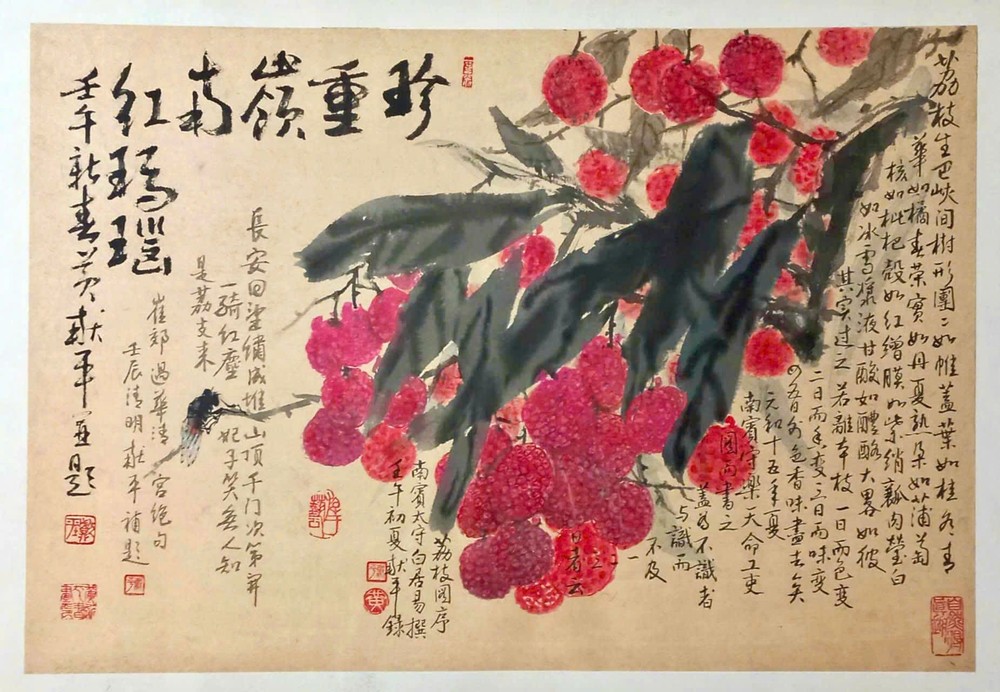 珍重嶺南紅
瑪瑙
壬午新春黄献平並題
荔枝生巴峽間樹形團二如帷蓋葉如桂冬青
華如橘春荣實如丹夏熟朵如蒲萄
核如枇杷殼如紅繒膜如紫綃瓤肉瑩白
如冰雪漿液甘酸如醴酪大畧如彼
其实过之若離本枝一日而色变
二日而香变三日而味变
四五日外色香味盡去矣
元和十五年夏
南賓守樂天命工吏
圖而書之
蓋为不識者
与識而
不及
一二三
日者云
荔枝圖序
南賓太守白居易撰
壬午初夏献平錄
長安回望繡成堆山頂千门次第開
一騎红塵妃子笑無人知
是荔支来
崔郊過華清宮绝句
壬辰清明献平補題